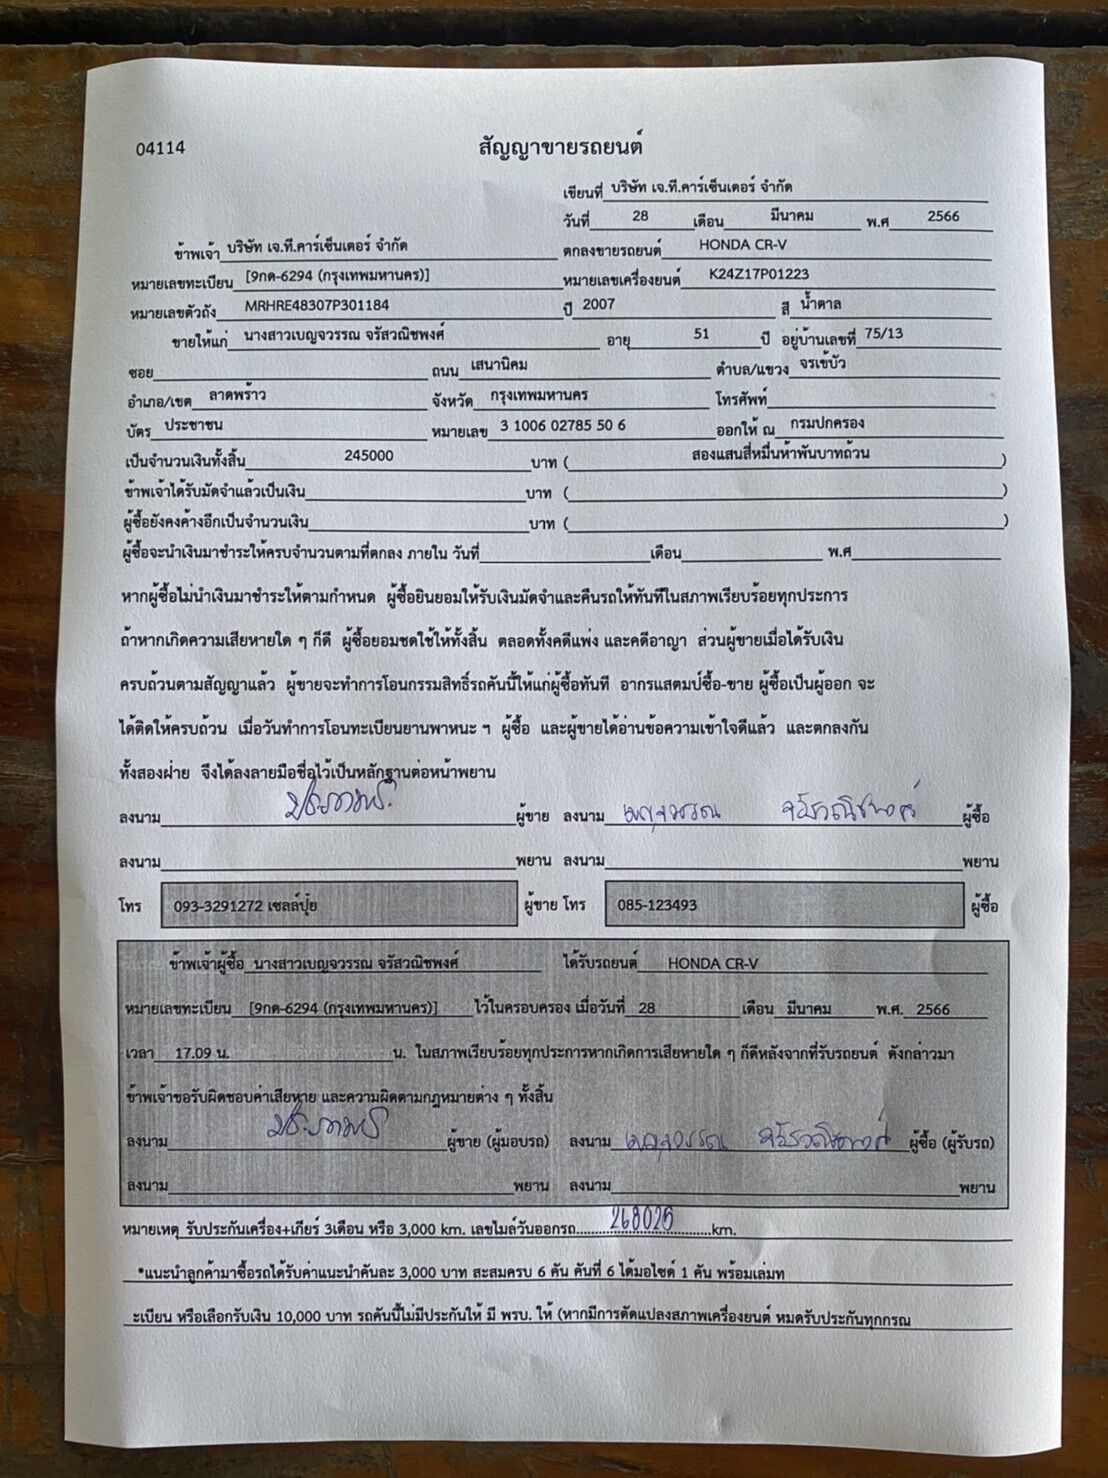 04114
สัญญาขายรถยนต์
เขียนที่ บริษัท เจ.ที.คาร์เซ็นเตอร์ จำกัด
วันที่ 28 เดือน มีนาคม พ.ศ 2566
ข้าพเจ้า บริษัท เจ.ที.คาร์เซ็นเตอร์ จำกัด ตกลงขายรถยนต์ HONDA CR-V
หมายเลขทะเบียน [9กด-6294 (กรุงเทพมหานคร)] หมายเลขเครื่องยนต์ K24Z17P01223
หมายเลขตัวถัง MRHRE48307P301184 ปี 2007 สี น้ำตาล
ขายให้แก่ นางสาวเบญจวรรณ จรัสวณิชพงศ์ อายุ 51 ปี อยู่บ้านเลขที่ 75/13
ซอย ถนน เสนานิคม ตำบล/แขวง จรเข้บัว
อำเภอ/เขต ลาดพร้าว จังหวัด กรุงเทพมหานคร โทรศัพท์
บัตร ประชาชน หมายเลข 3 1006 02785 50 6 ออกให้ ณ กรมปกครอง
เป็นจำนวนเงินทั้งสิ้น 245000 บาท ( สองแสนสี่หมื่นห้าพันบาทถ้วน )
ข้าพเจ้าได้รับมัดจำแล้วเป็นเงิน บาท ( )
ผู้ซื้อยังคงค้างอีกเป็นจำนวนเงิน บาท ( )
ผู้ซื้อจะนำเงินมาชำระให้ครบจำนวนตามที่ตกลง ภายใน วันที่ เดือน พ.ศ
หากผู้ซื้อไม่นำเงินมาชำระให้ตามกำหนด ผู้ซื้อยินยอมให้รับเงินมัดจำและคืนรถให้ทันทีในสภาพเรียบร้อยทุกประการ
ถ้าหากเกิดความเสียหายใด ๆ ก็ดี ผู้ซื้อยอมชดใช้ให้ทั้งสิ้น ตลอดทั้งคดีแพ่ง และคดีอาญา ส่วนผู้ขายเมื่อได้รับเงิน
ครบถ้วนตามสัญญาแล้ว ผู้ขายจะทำการโอนกรรมสิทธิ์รถคันนี้ให้แก่ผู้ซื้อทันที อากรแสตมป์ซื้อ-ขาย ผู้ซื้อเป็นผู้ออก จะ
ได้ติดให้ครบถ้วน เมื่อวันทำการโอนทะเบียนยานพาหนะ ฯ ผู้ซื้อ และผู้ขายได้อ่านข้อความเข้าใจดีแล้ว และตกลงกัน
ทั้งสองฝ่าย จึงได้ลงลายมือชื่อไว้เป็นหลักฐานต่อหน้าพยาน
ลงนาม ผู้ขาย ลงนาม เบญจวรรณ จรัสวณิชพงศ์ ผู้ซื้อ
ลงนาม พยาน ลงนาม พยาน
โทร 093-3291272 เซลล์ปุ้ย ผู้ขาย โทร 085-123493 ผู้ซื้อ
ข้าพเจ้าผู้ซื้อ นางสาวเบญจวรรณ จรัสวณิชพงศ์ ได้รับรถยนต์ HONDA CR-V
หมายเลขทะเบียน [9กด-6294 (กรุงเทพมหานคร)] ไว้ในครอบครอง เมื่อวันที่ 28 เดือน มีนาคม พ.ศ. 2566
เวลา 17.09 น. น. ในสภาพเรียบร้อยทุกประการหากเกิดการเสียหายใด ๆ ก็ดีหลังจากที่รับรถยนต์ ดังกล่าวมา
ข้าพเจ้าขอรับผิดชอบค่าเสียหาย และความผิดตามกฎหมายต่าง ๆ ทั้งสิ้น
ลงนาม ผู้ขาย (ผู้มอบรถ) ลงนาม เบญจวรรณ จรัสวณิชพงศ์ ผู้ซื้อ (ผู้รับรถ)
ลงนาม พยาน ลงนาม พยาน
หมายเหตุ รับประกันเครื่อง+เกียร์ 3เดือน หรือ 3,000 km. เลขไมล์วันออกรถ 268025 km.
*แนะนำลูกค้ามาซื้อรถได้รับค่าแนะนำคันละ 3,000 บาท สะสมครบ 6 คัน คันที่ 6 ได้มอไซด์ 1 คัน พร้อมเล่มท
ะเบียน หรือเลือกรับเงิน 10,000 บาท รถคันนี้ไม่มีประกันให้ มี พรบ. ให้ (หากมีการดัดแปลงสภาพเครื่องยนต์ หมดรับประกันทุกกรณ